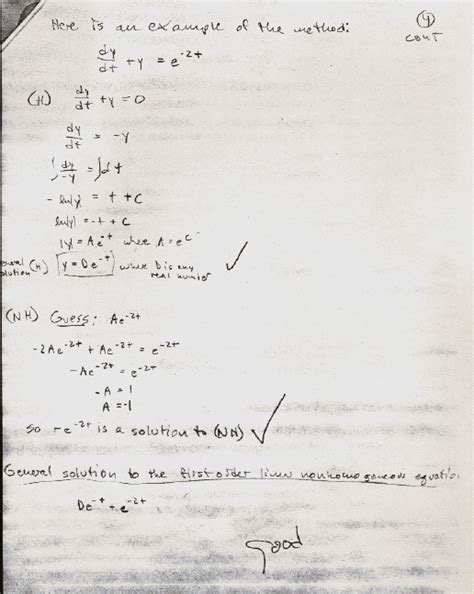 Here is an example of the method:
④
CONT
dy/dt + y = e^-2t
(H) dy/dt + y = 0
dy/dt = -y
∫ dy/-y = ∫ dt
- ln|y| = t + C
ln|y| = -t + C
|y| = Ae^-t where A = e^C
General solution (H) y = De^-t where D is any real number ✓
(NH) Guess: Ae^-2t
-2Ae^-2t + Ae^-2t = e^-2t
-Ae^-2t = e^-2t
-A = 1
A = -1
So -e^-2t is a solution to (NH) ✓
General solution to the first order linear nonhomogeneous equation
De^-t + e^-2t
good